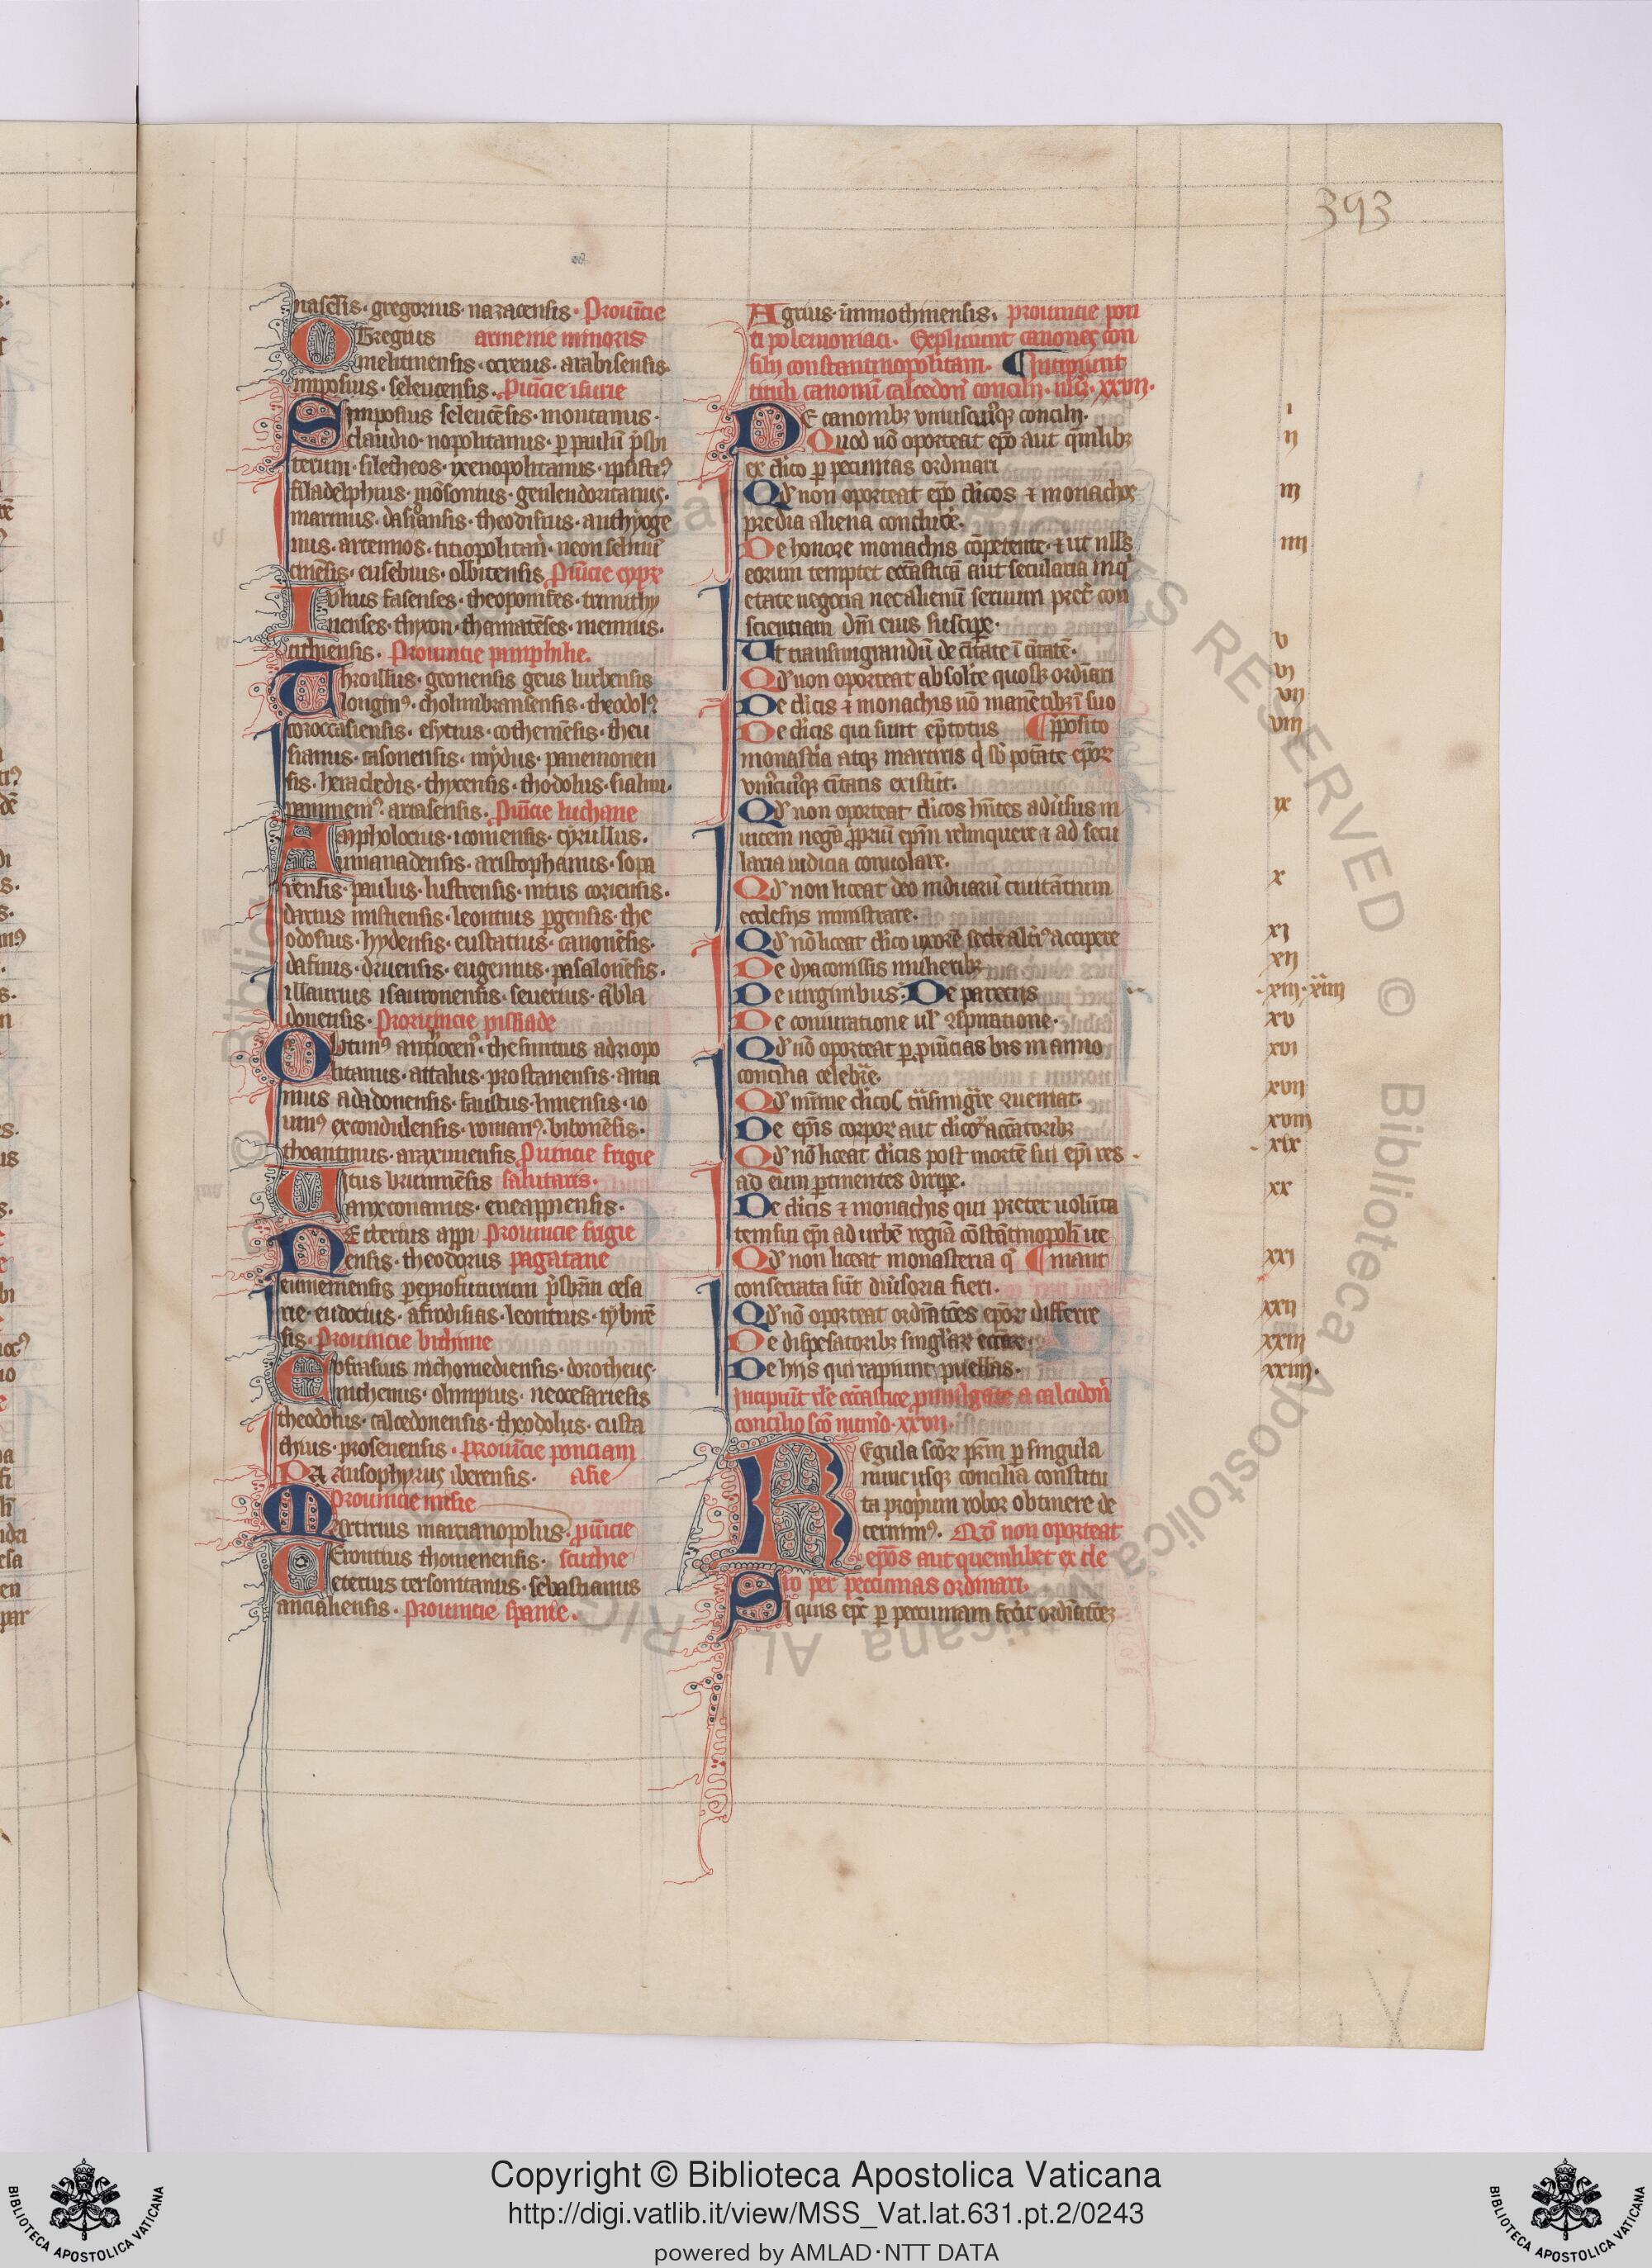 393
nascēsis · gregorius · nazacensis · Prouīcie
OTregius armenie minoris
melitinensis · ocreius · arabisensis ·
imposius · seleucensis · Puīcie isaurie
Simposius seleucēsis · montanus ·
claudio · nopolitanus · ꝑ paulū p̄sbi
terum · filetheos · yrenopolitanus ·
filadelphius · mōsonius ·
marinus · theodisius · anthyoge
nus · artemios · titiopolitan̄ · neon
cinēsis · eusebius · olbitensis Puīcie cypꝝ
Iulius fasenses · theopomēses · trimithy
nenses · thyxon · thamatēses · memius ·
cithiensis · Prouincie pamphilie.
Throillus · geonensis geus lurbensis
longinꝰ · cholimbransensis · theodolꝰ
coroccasiensis · eherus · cothemēsis · theu
sianus · casonensis · mydus · panemonen
sis · heracledis · thycensis · thodolus · sialim ·
pammemꝰ arrasensis · Puīcie luchane
Anpholocius · iconiensis · cyrullus ·
umanadensis · aristophanus · sopa
rensis · paulus · lustrensis · intius coricusis ·
darius mistiensis · leontius ꝑgensis · the
odosius · hydensis · eustatius · canonēsis ·
dafinus · druensis · eugenius · pasalonēsis ·
illaurius isauronensis · seuerius · ābla
donensis · Prouincie pissiade
Obtimꝰ antiocenꝰ · thesinitus adriopo
litanus · attalus · prostanensis · ama
nius adadonensis · faustus · linnensis · io
uinꝰ excondulensis · romanꝰ · bibonēsis ·
thoantinus · araxinensis Puincie frigie
Uitus brumnēsis salutaris ·
anxconanus · eneappiensis ·
NEcterius appi Prouincie frigie
ensis · theodorus pagatane
eumemensis ꝑ profuturum p̄sbr̄m cesa
rie · eudocius · afrodisias · leontius · tybirē
sis · Prouincie bithinie
Eofrasius nichomediensis · dorotheus ·
nichenus · olimpius · neocesariēsis
theodolus · calcedonensis · theodolus · eusta
thius · prosenensis · Prouīcie ponciam
PA ansophyrus iberensis · asie
Prouincie misie
Martirius marcianopolus · puīcie
Gerontius thomenensis · scithie
eterius tersonitanus · sebastianus
ancialiensis · Prouincie spanie ·
Agrius · immothinensis · prouincie pon
ti polemoniaci · Expliciunt canones con
silii constantinopolitani · ¶Incipiunt
tituli canonū calcedonē concilii · nūō · xxvii ·
DE canonibꝫ vniuscuiꝰqꝫ concilii ·
Quod nō oporteat ep̄o aut quēlibꝫ
ex clīco ꝑ pecunias ordinari
Qđ non oporteat ep̄o clīcos ⁊ monachos
predia aliena conducē ·
De honore monachis cōpetente · ⁊ ut nlls
eorum temptet ecc̄asticā aut secularia inqͥ
etate negocia nec alienū seruum pret̄ con
scientiam dn̄i eius suscipe ·
Ut transmigrandū de ciūtate ī ciūtatē ·
Qđ non oporteat absolte quosꝫ ordinari
De clīcis ⁊ monachis nō manētibꝫ ī suo
De clīcis qui sunt ep̄totus ¶pposito
monastīa atqꝫ martiris qͥ sb̄ potāte ep̄oꝝ
vniͦcuiꝰqꝫ ciūtatis existūt ·
Qđ non oporteat clīcos hn̄tes aduſsus in
uicem negͦa ꝓpriū ep̄m relinquere ⁊ ad secu
laria iudicia conuolare ·
Qđ non liceat deo in duarū ciuitātum
ecclesiis ministrare ·
Qđ nō liceat clīco uxorē secte altiꝰ accipere
De dyaconissis mulieribꝫ
De uirginibus · De parecijs
De coniuratione ul' ꝯspiratione ·
Qđ nō oporteat ꝑ puīcias bis in anno
concilia celebrē ·
Qđ mīme clīcos trāsmigͣre ꝯueniat
De ep̄is corpoꝝ aut clīcoꝝ accīatoribꝫ
Qđ nō liceat clīcis post mortē sui ep̄i res
ad eum ꝑtinentes diripe ·
De clīcis ⁊ monachis qui preter uolūta
tem sui ep̄i ad urbē regiā cōstātinopolī ue
Qđ non liceat monasteria qͥ ¶niant
consecrata sūt diūsoria fieri ·
Qđ nō oporteat ordinatōes ep̄oꝝ differre
De dispēsatoribꝫ singlaꝝ eccaꝝ ·
De hiis qui rapiunt puellas ·
Incipiūt rl'e ecc̄astice promulgate a calcidon̄
concilio sc̄o numō · xxvii ·
REgula scōꝝ pr̄m ꝑ singula
nunc usqꝫ concilia constitu
ta proprium robor obtinere de
cernimꝰ · Qđ non oporteat
ep̄os aut quemlibet ex cle
ro per peccunias ordinari ·
Si quis ep̄c ꝑ peccuniam fec̄it ordīatōeꝫ
i
ii
iii
iiii
v
vi
vii
viii
ix
x
xi
xii
xiii · xiiii
xv
xvi
xvii
xviii
xix
xx
xxi
xxii
xxiii
xxiiii ·
Copyright © Biblioteca Apostolica Vaticana
http://digi.vatlib.it/view/MSS_Vat.lat.631.pt.2/0243
powered by AMLAD·NTT DATA
BIBLIOTECA APOSTOLICA VATICANA
BIBLIOTECA APOSTOLICA VATICANA